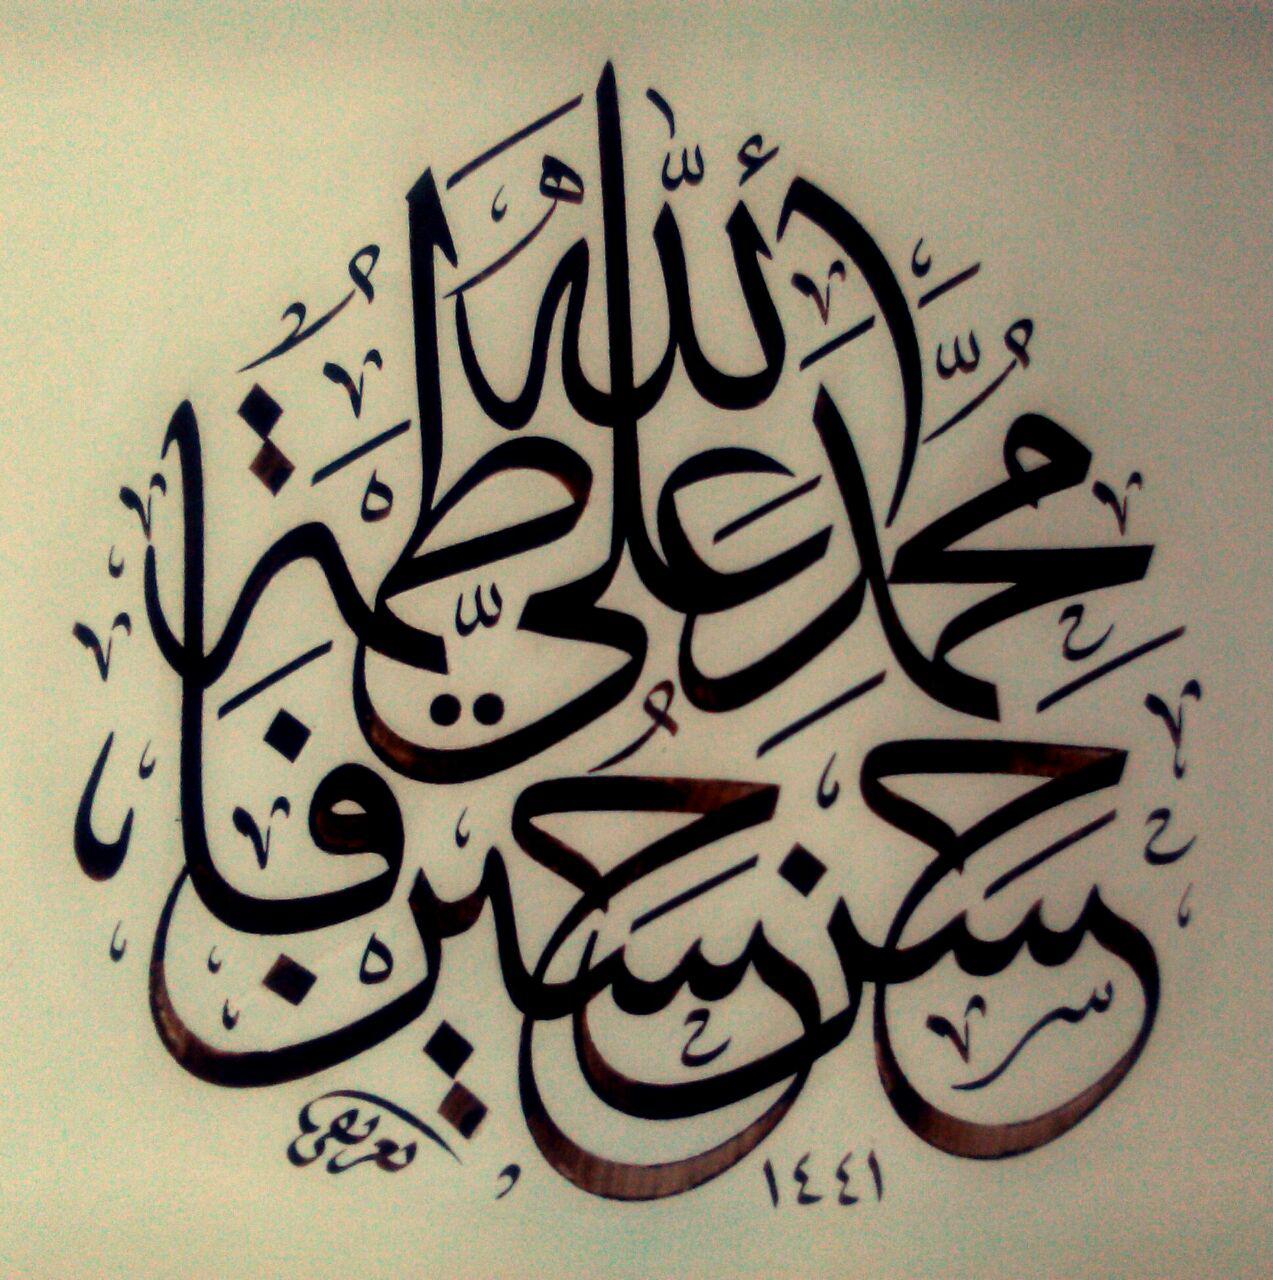 الله
محمد
علي
فاطمة
حسن
حسين
١٤٤١